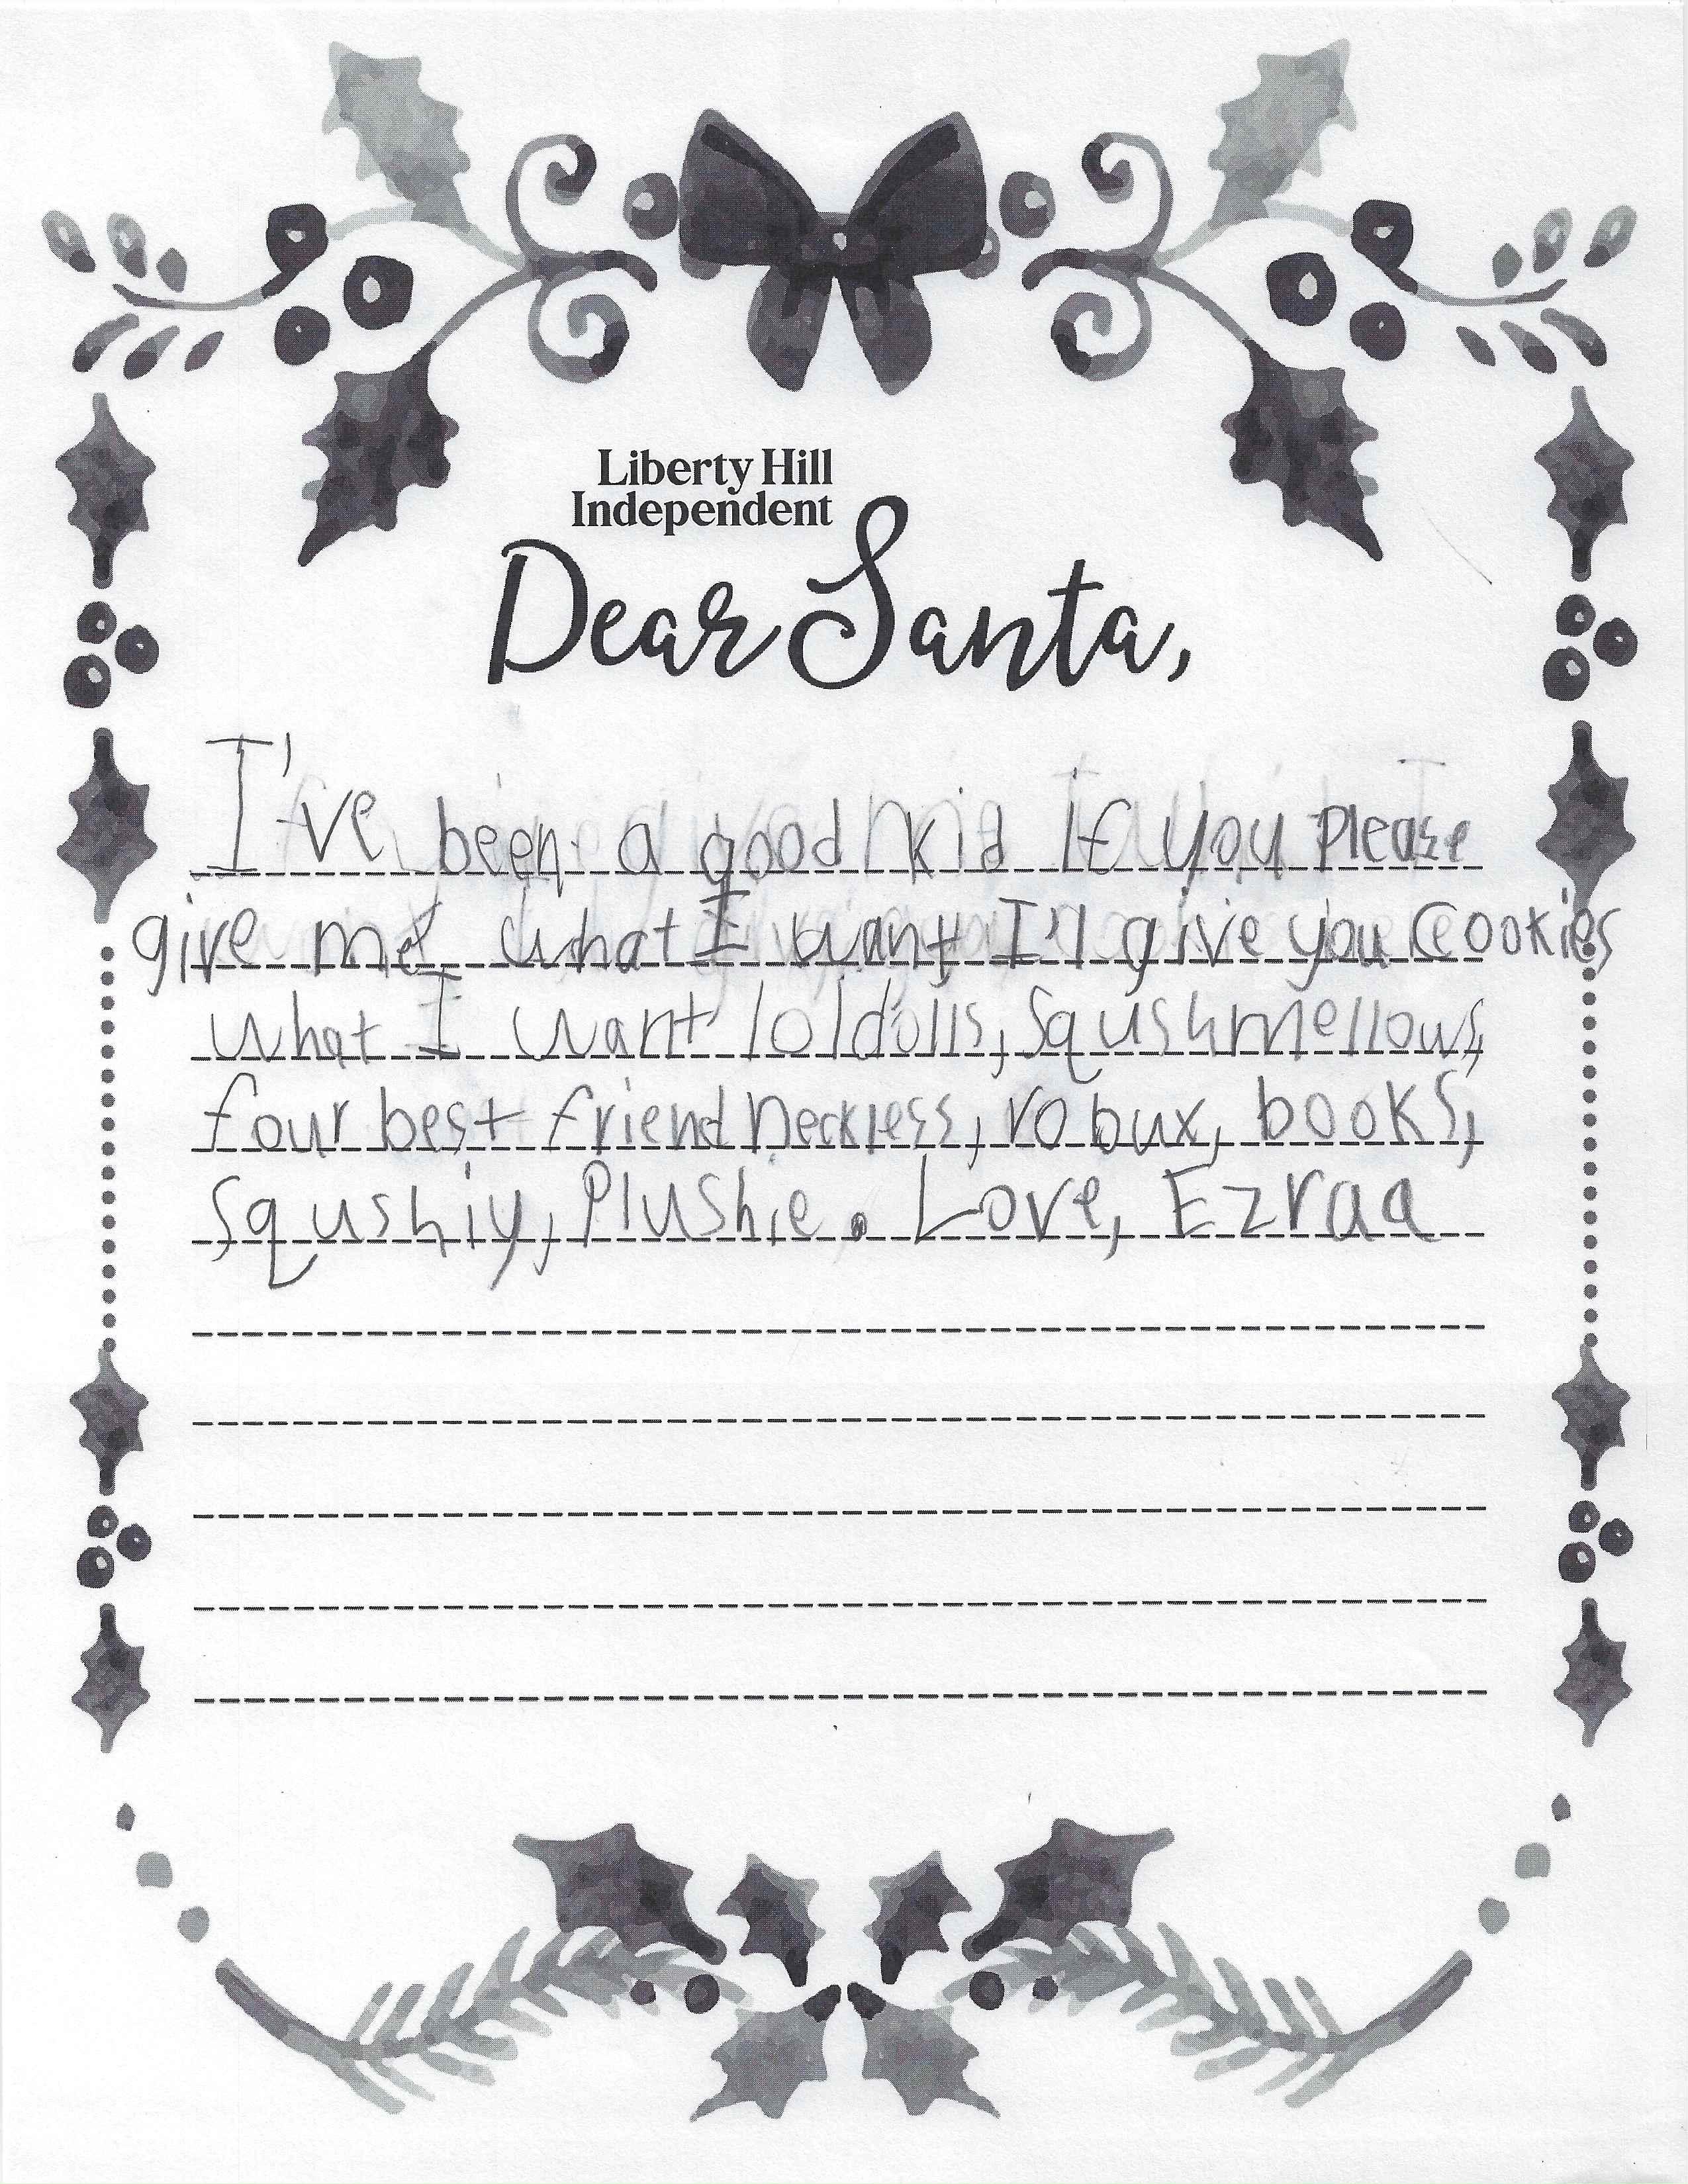 Liberty Hill
Independent
Dear Santa,
I've been a good kid If you Please
give me what I want I'l give you Cookies
what I want lol dolls, Squshmellows,
four best friend neckless, robux, books,
Squshiy, Plushie. Love, Ezraa